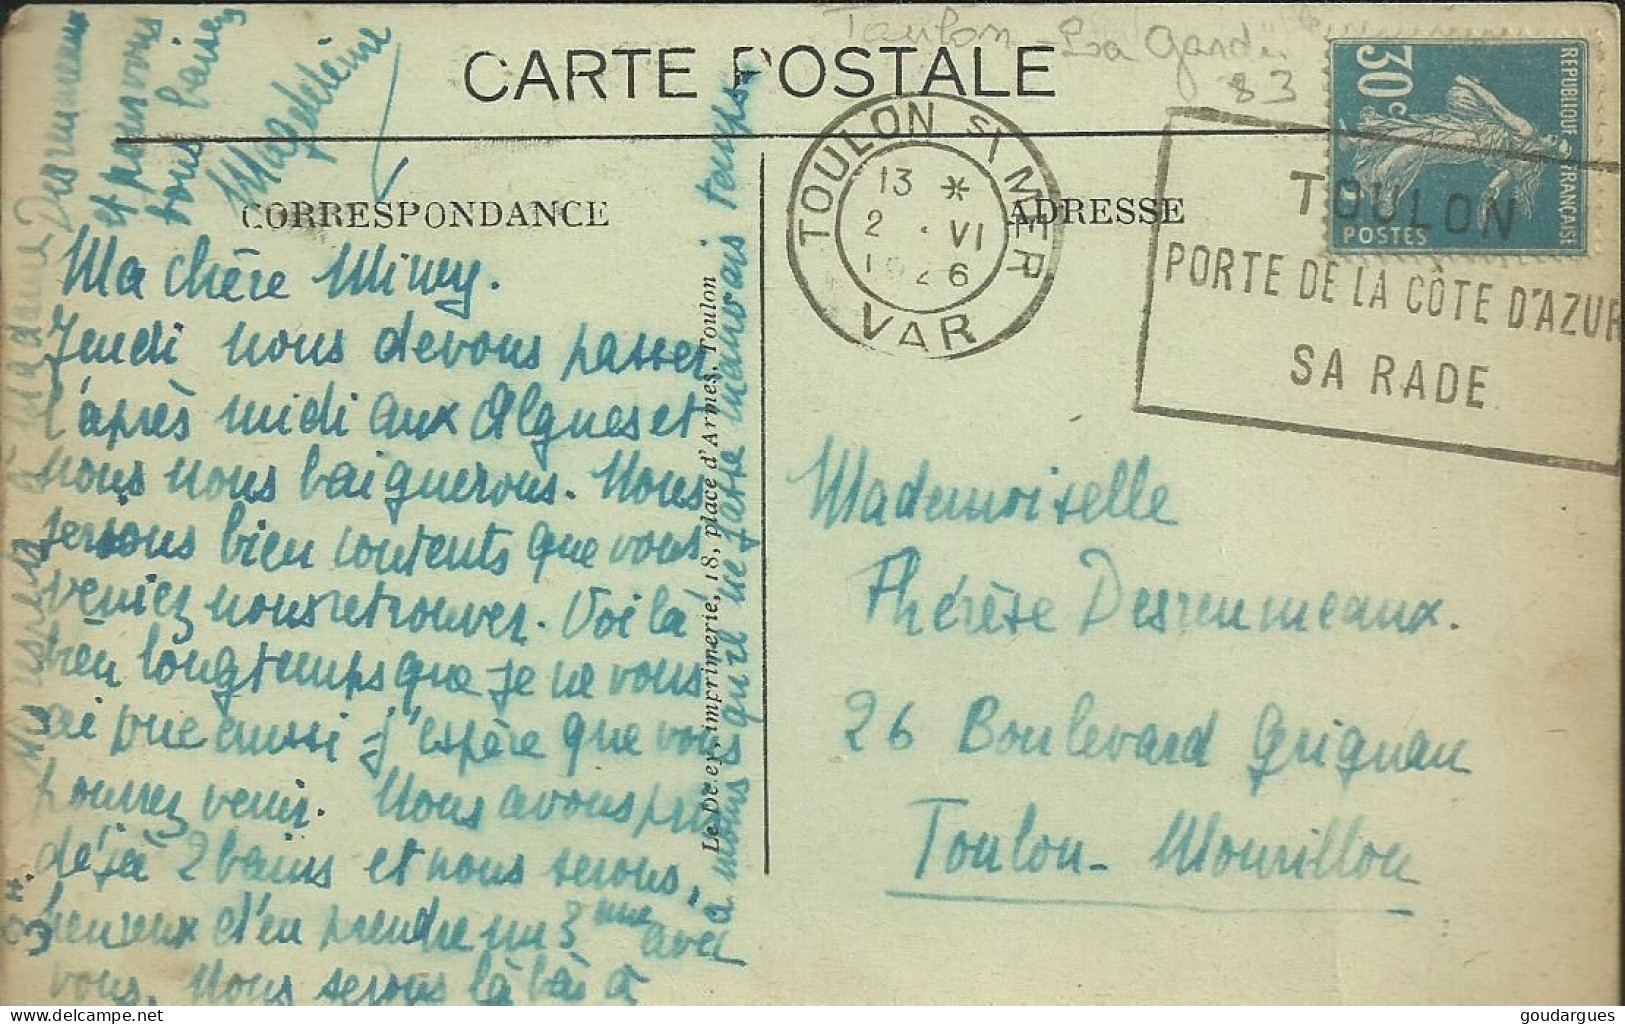 Toulon - La Garde
83
CARTE POSTALE
CORRESPONDANCE
ADRESSE
TOULON Sr MER
13 *
2 . VI
1926
VAR
30c
REPUBLIQUE FRANÇAISE
POSTES
TOULON
PORTE DE LA CÔTE D'AZUR
SA RADE
Ma chère Mimy.
Jeudi nous devons passer
l'après midi aux Algues et
nous nous baignerons. Nous
serions bien contents que vous
veniez nous retrouver. Voilà
bien longtemps que je ne vous
ai vue aussi j'espère que vous
pourrez venir. Nous avons pris
déjà 2 bains et nous serons
heureux d'en prendre un 3me avec
vous. Nous serons là bàs à
3H.
à moins qu'il ne fasse mauvais temps.
à Madame Desreumeaux
et pour vous
tous baisers
Magdeleine
imprimerie, 18, place d'Armes, Toulon
Mademoiselle
Thérèse Desreumeaux.
26 Boulevard Grignan
Toulon - Mourillon
goudargues @ delcampe.net